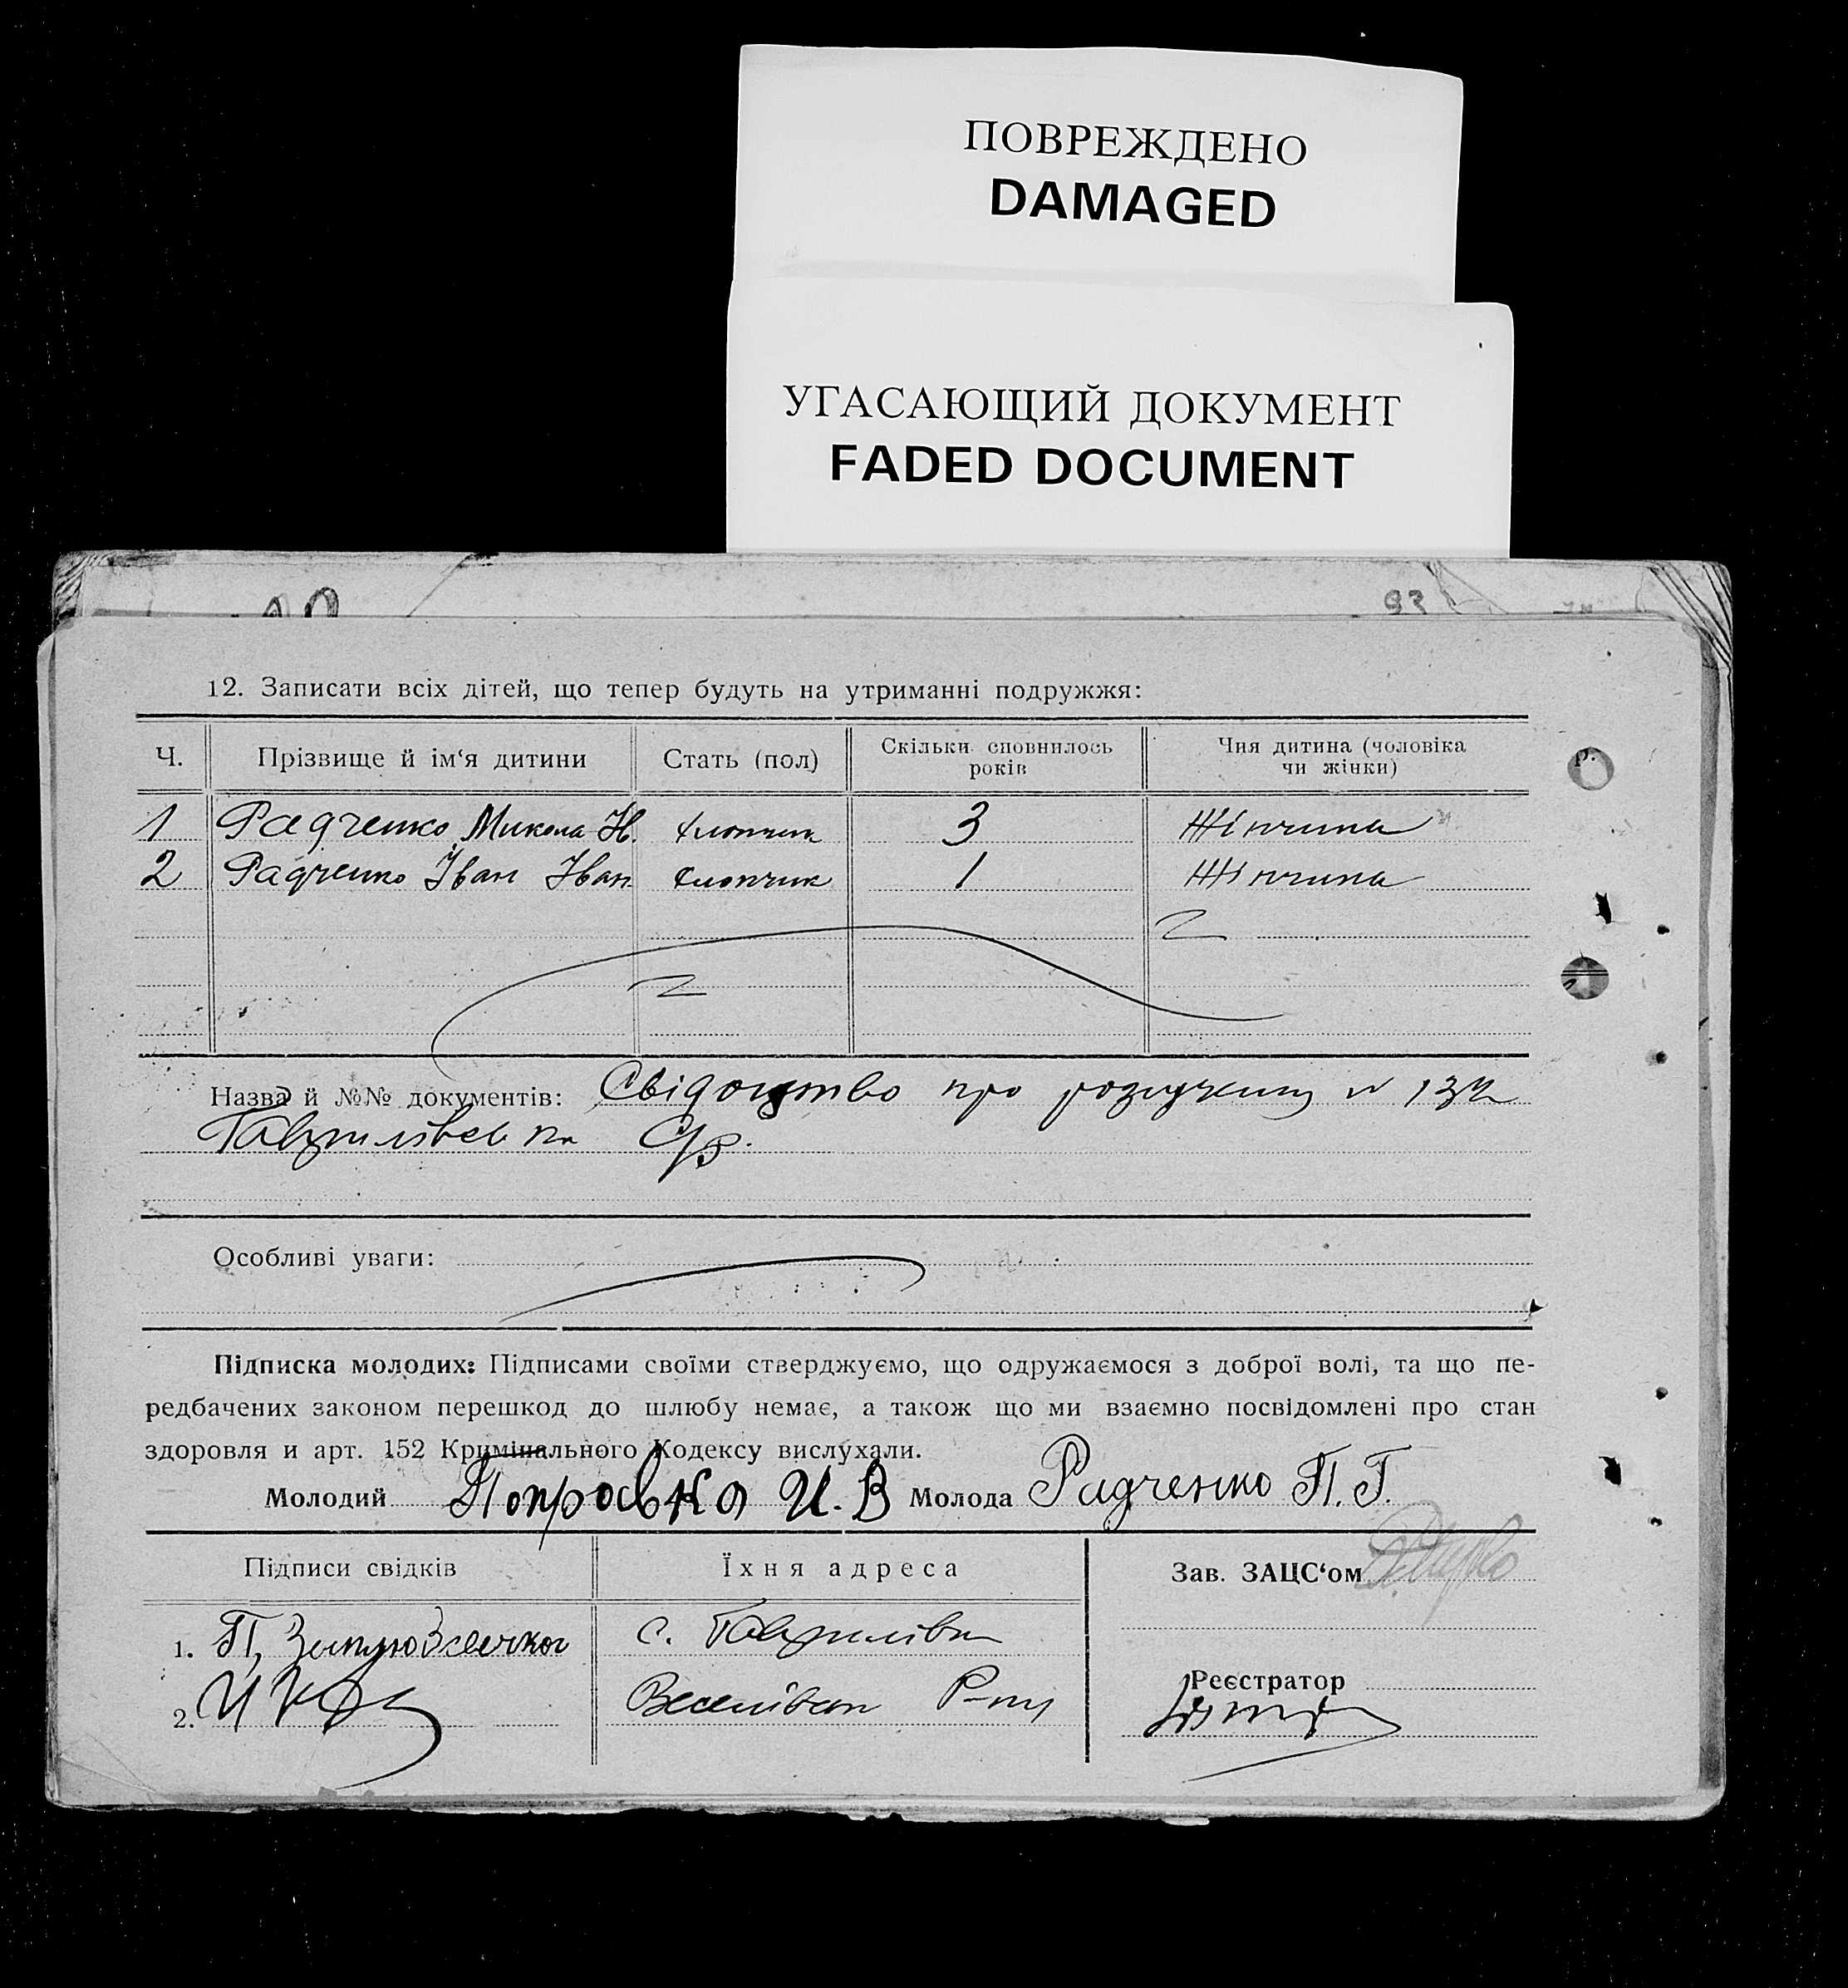 ПОВРЕЖДЕНО
DAMAGED
УГАСАЮЩИЙ ДОКУМЕНТ
FADED DOCUMENT
93
12. Записати всіх дітей, що тепер будуть на утриманні подружжя:
Ч. Прізвище й ім‘я дитини Стать (пол) Скільки сповнилось років Чия дитина (чоловіка чи жінки)
1 Радченко Микола Н. хлопчик 3 Жінчина
2 Радченко Іван Іван хлопчик 1 Жінчина
Назва й №№ документів: Свідоцтво про розлучення №
Гаврилівсь
Особливі уваги:
Підписка молодих: Підписами своїми стверджуємо, що одружаємося з доброї волі, та що пе-
редбачених законом перешкод до шлюбу немає, а також що ми взаємно посвідомлені про стан
здоровля и арт. 152 Кримінального Кодексу вислухали.
Молодий Поправка И. В Молода Радченко П. Г.
Підписи свідків Їхня адреса Зав. ЗАЦС‘ом
1. П. с. Гаврилівка
Реєстратор
2. Р-ну